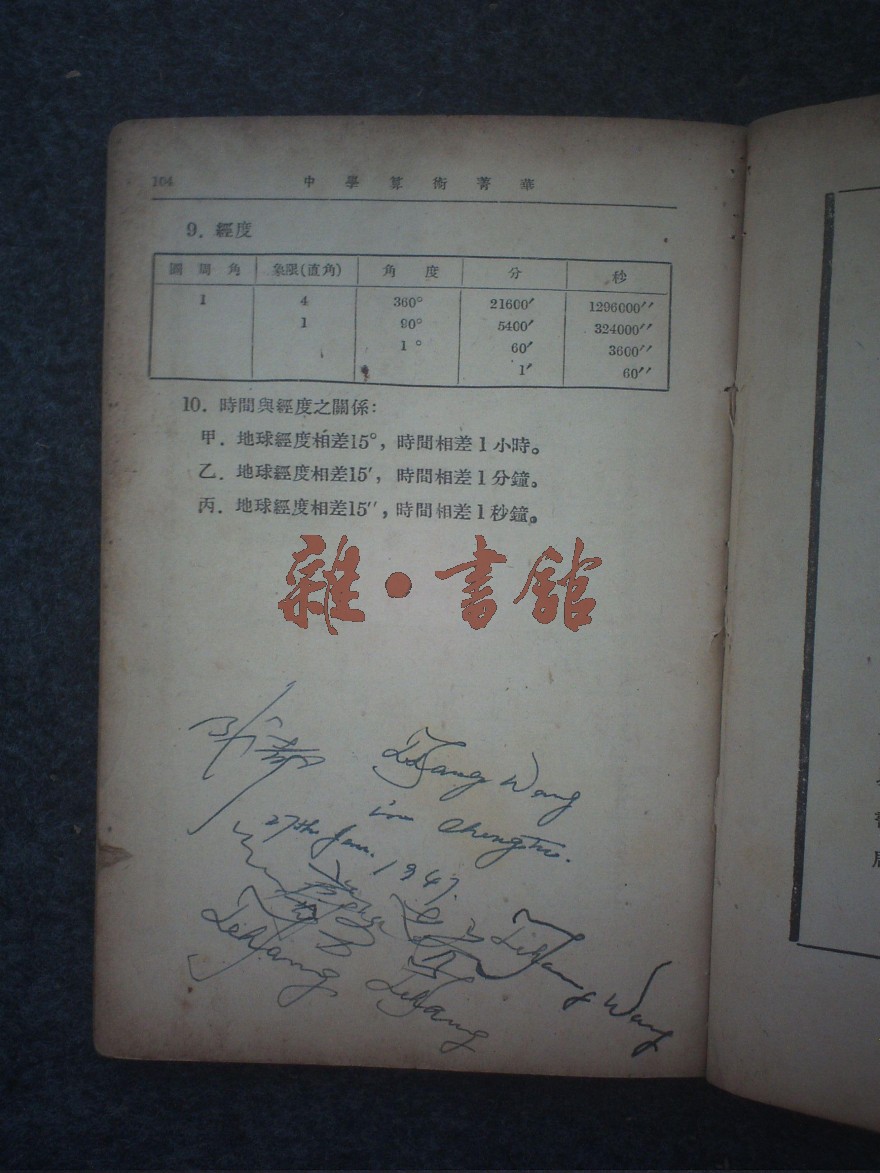 104 中學算術菁華
9. 經度
圓周角 象限(直角) 角度 分 秒
1 4 360° 21600′ 1296000′′
1 90° 5400′ 324000′′
1° 60′ 3600′′
1′ 60′′
10. 時間與經度之關係:
甲. 地球經度相差15°, 時間相差1小時。
乙. 地球經度相差15′, 時間相差1分鐘。
丙. 地球經度相差15′′, 時間相差1秒鐘。
雜·書館
Wang
Chengtu.
27th Jan. 1947.
Wang